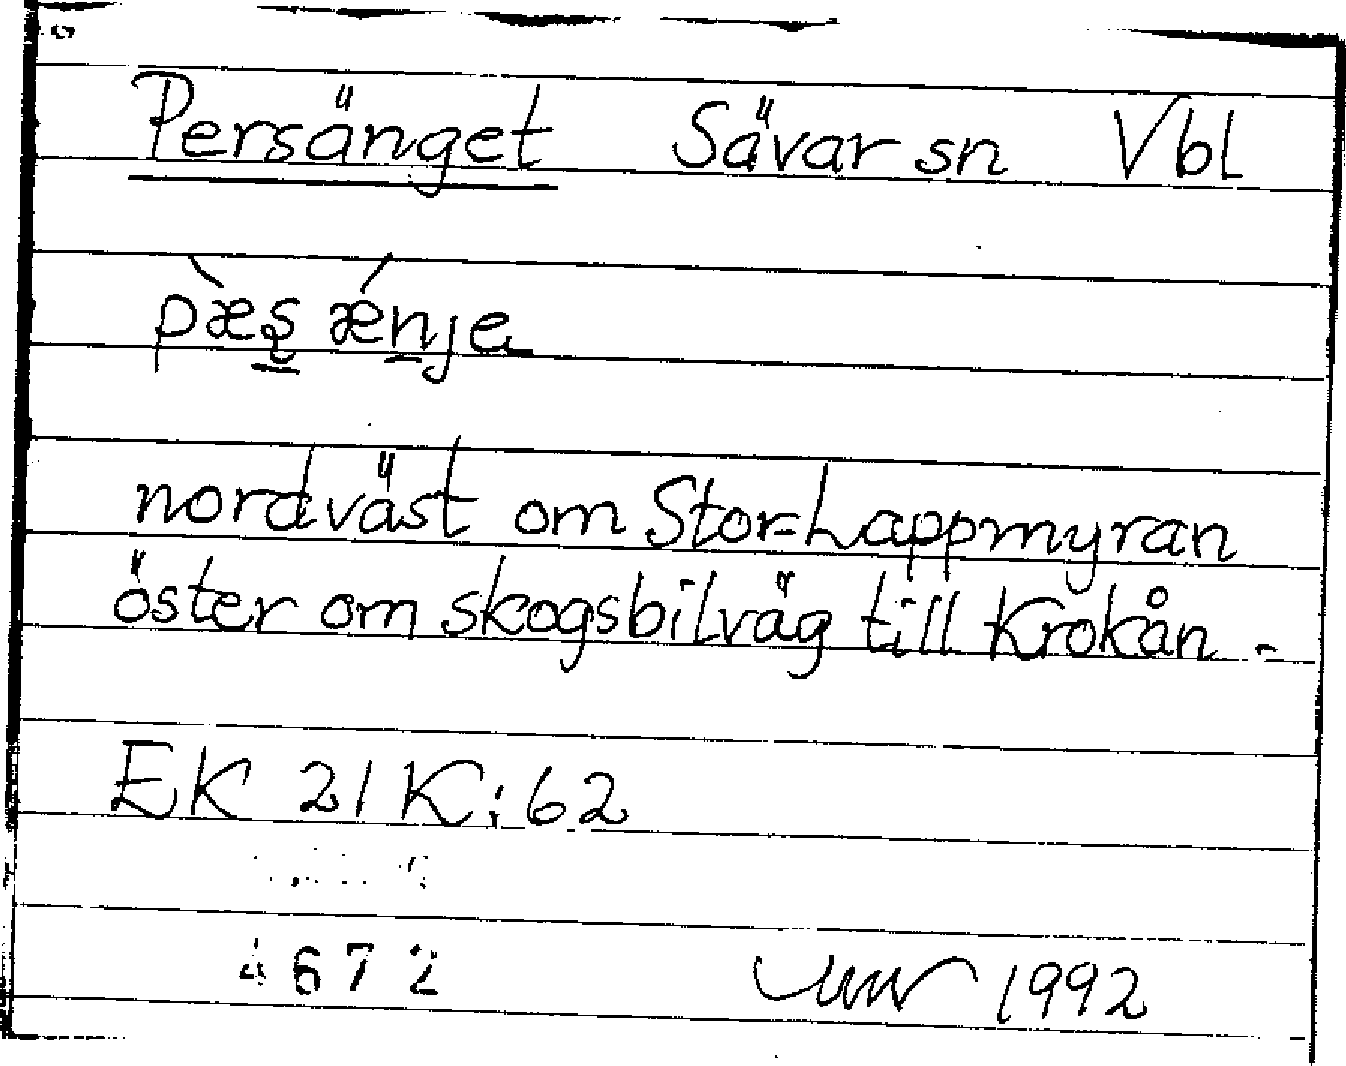 Persänget Sävar sn Vbl
pæ̀ş ǽnje
nordväst om Stor-Lappmyran
öster om skogsbilväg till Krokån -
EK 21 K:62
4672 1992